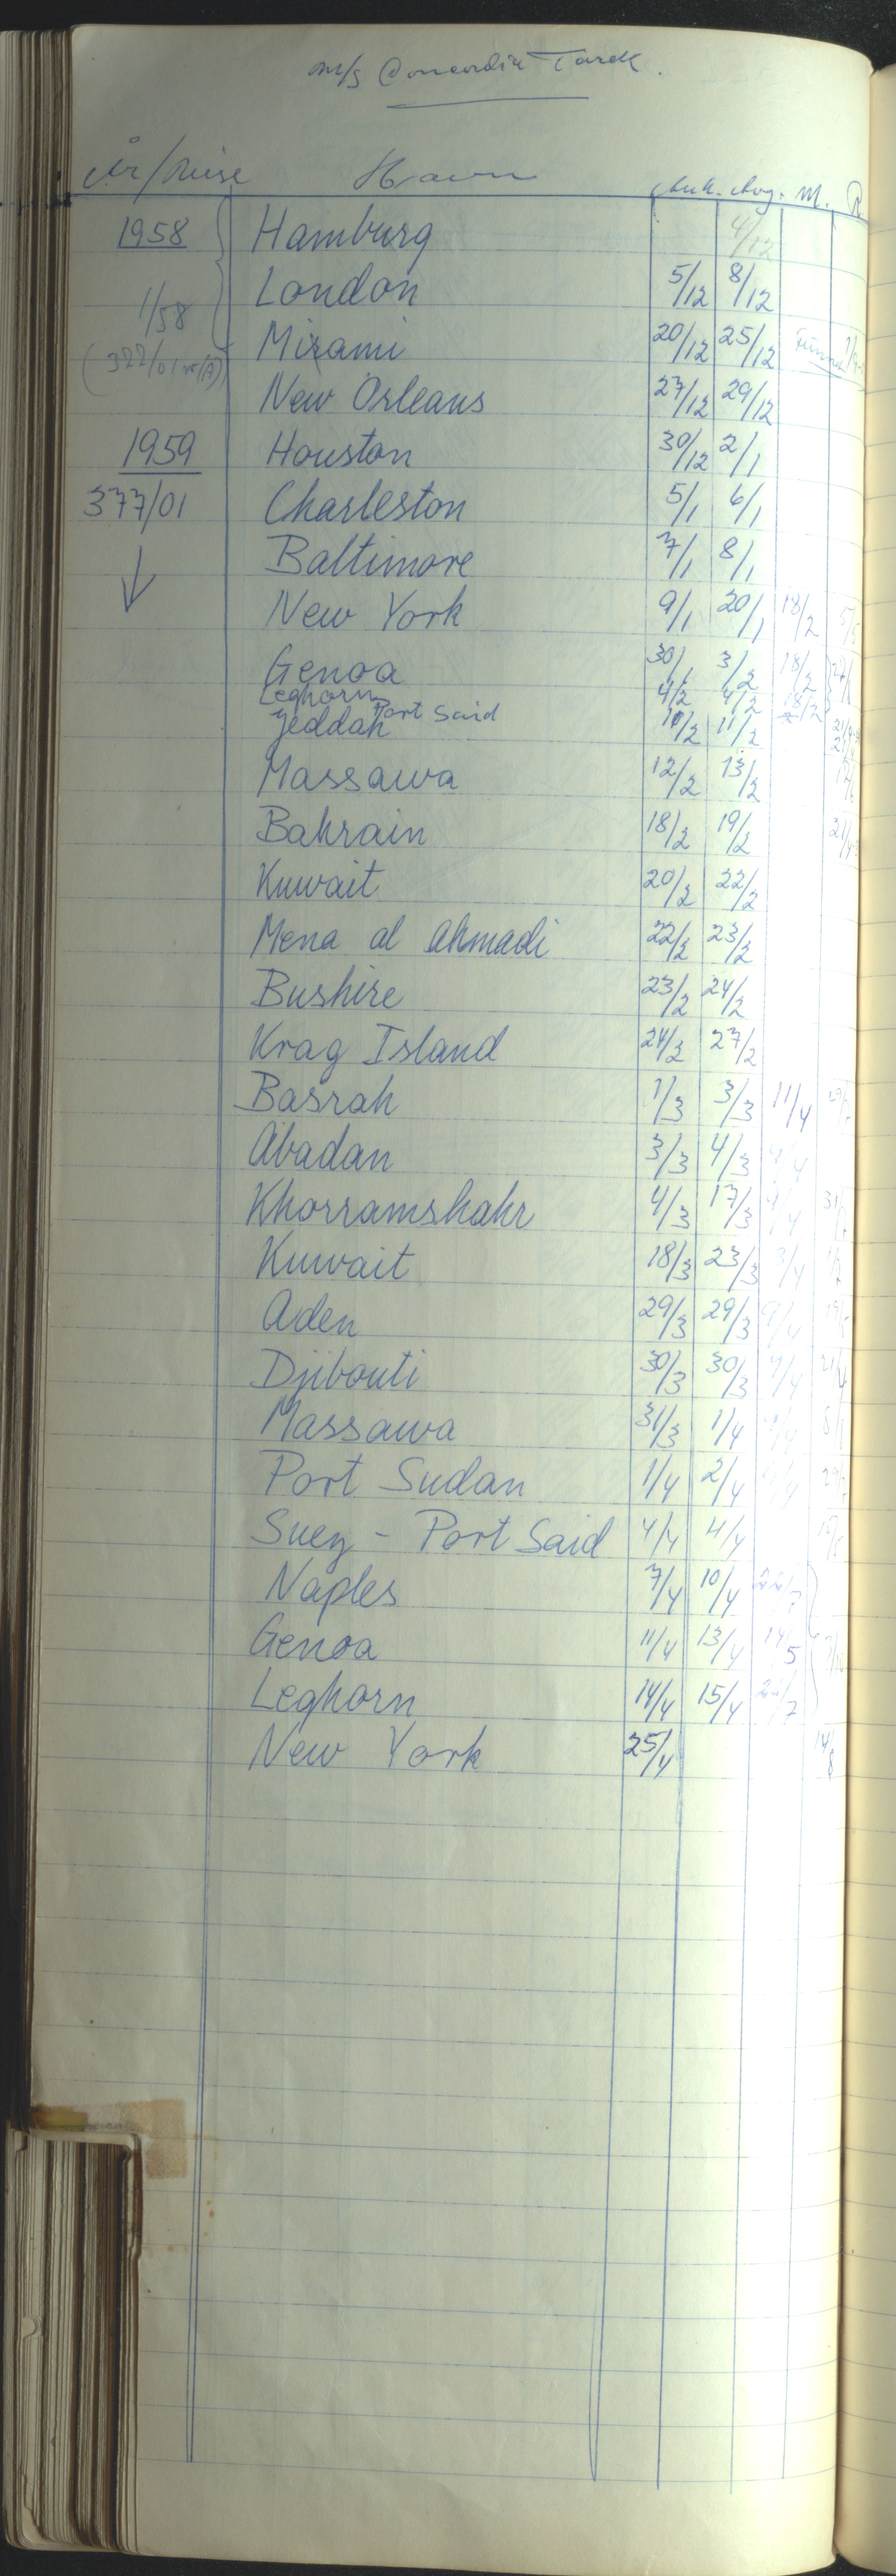 m/s Concordia Tarek.
År/Reise Havn Ank. Avg. M. R
1958 Hamburg 4/12
London 5/12 8/12
1/58
Miami 20/12 25/12
New Orleans 27/12 29/12
1959 Houston 30/12 2/1
377/01 Charleston 5/1 6/1
Baltimore 7/1 8/1
New York 9/1 20/1 18/2
Genoa 30/1 3/2 18/2
Leghorn 4/2 4/2 18/2
Port Said
Jeddah 10/2 11/2
Massawa 12/2 13/2
Bahrain 18/2 19/2
Kuwait 20/2 22/2
Mena al Ahmadi 22/2 23/2
Bushire 23/2 24/2
Krag Island 24/2 27/2
Basrah 1/3 3/3 11/4
Abadan 3/3 4/3
Khorramshahr 4/3 17/3
Kuwait 18/3 23/3
Aden 29/3 29/3
Djibouti 30/3 30/3
Massawa 31/3 1/4
Port Sudan 1/4 2/4
Suez - Port Said 4/4 4/4
Naples 7/4 10/4
Genoa 11/4 13/4 14/5
Leghorn 14/4 15/4
New York 25/4 14/8